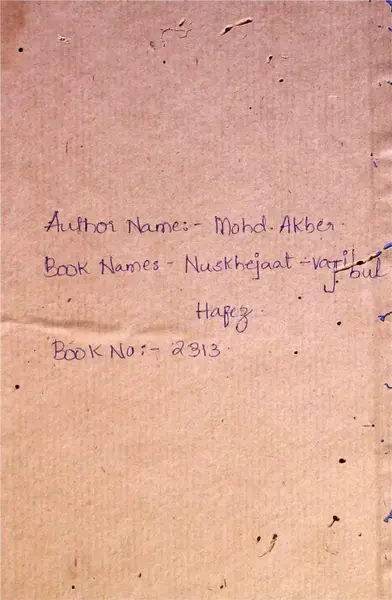 Author Name:- Mohd. Akber.
Book Names - Nuskhejaat -vajibul
Hafez.
Book No:- 2313.